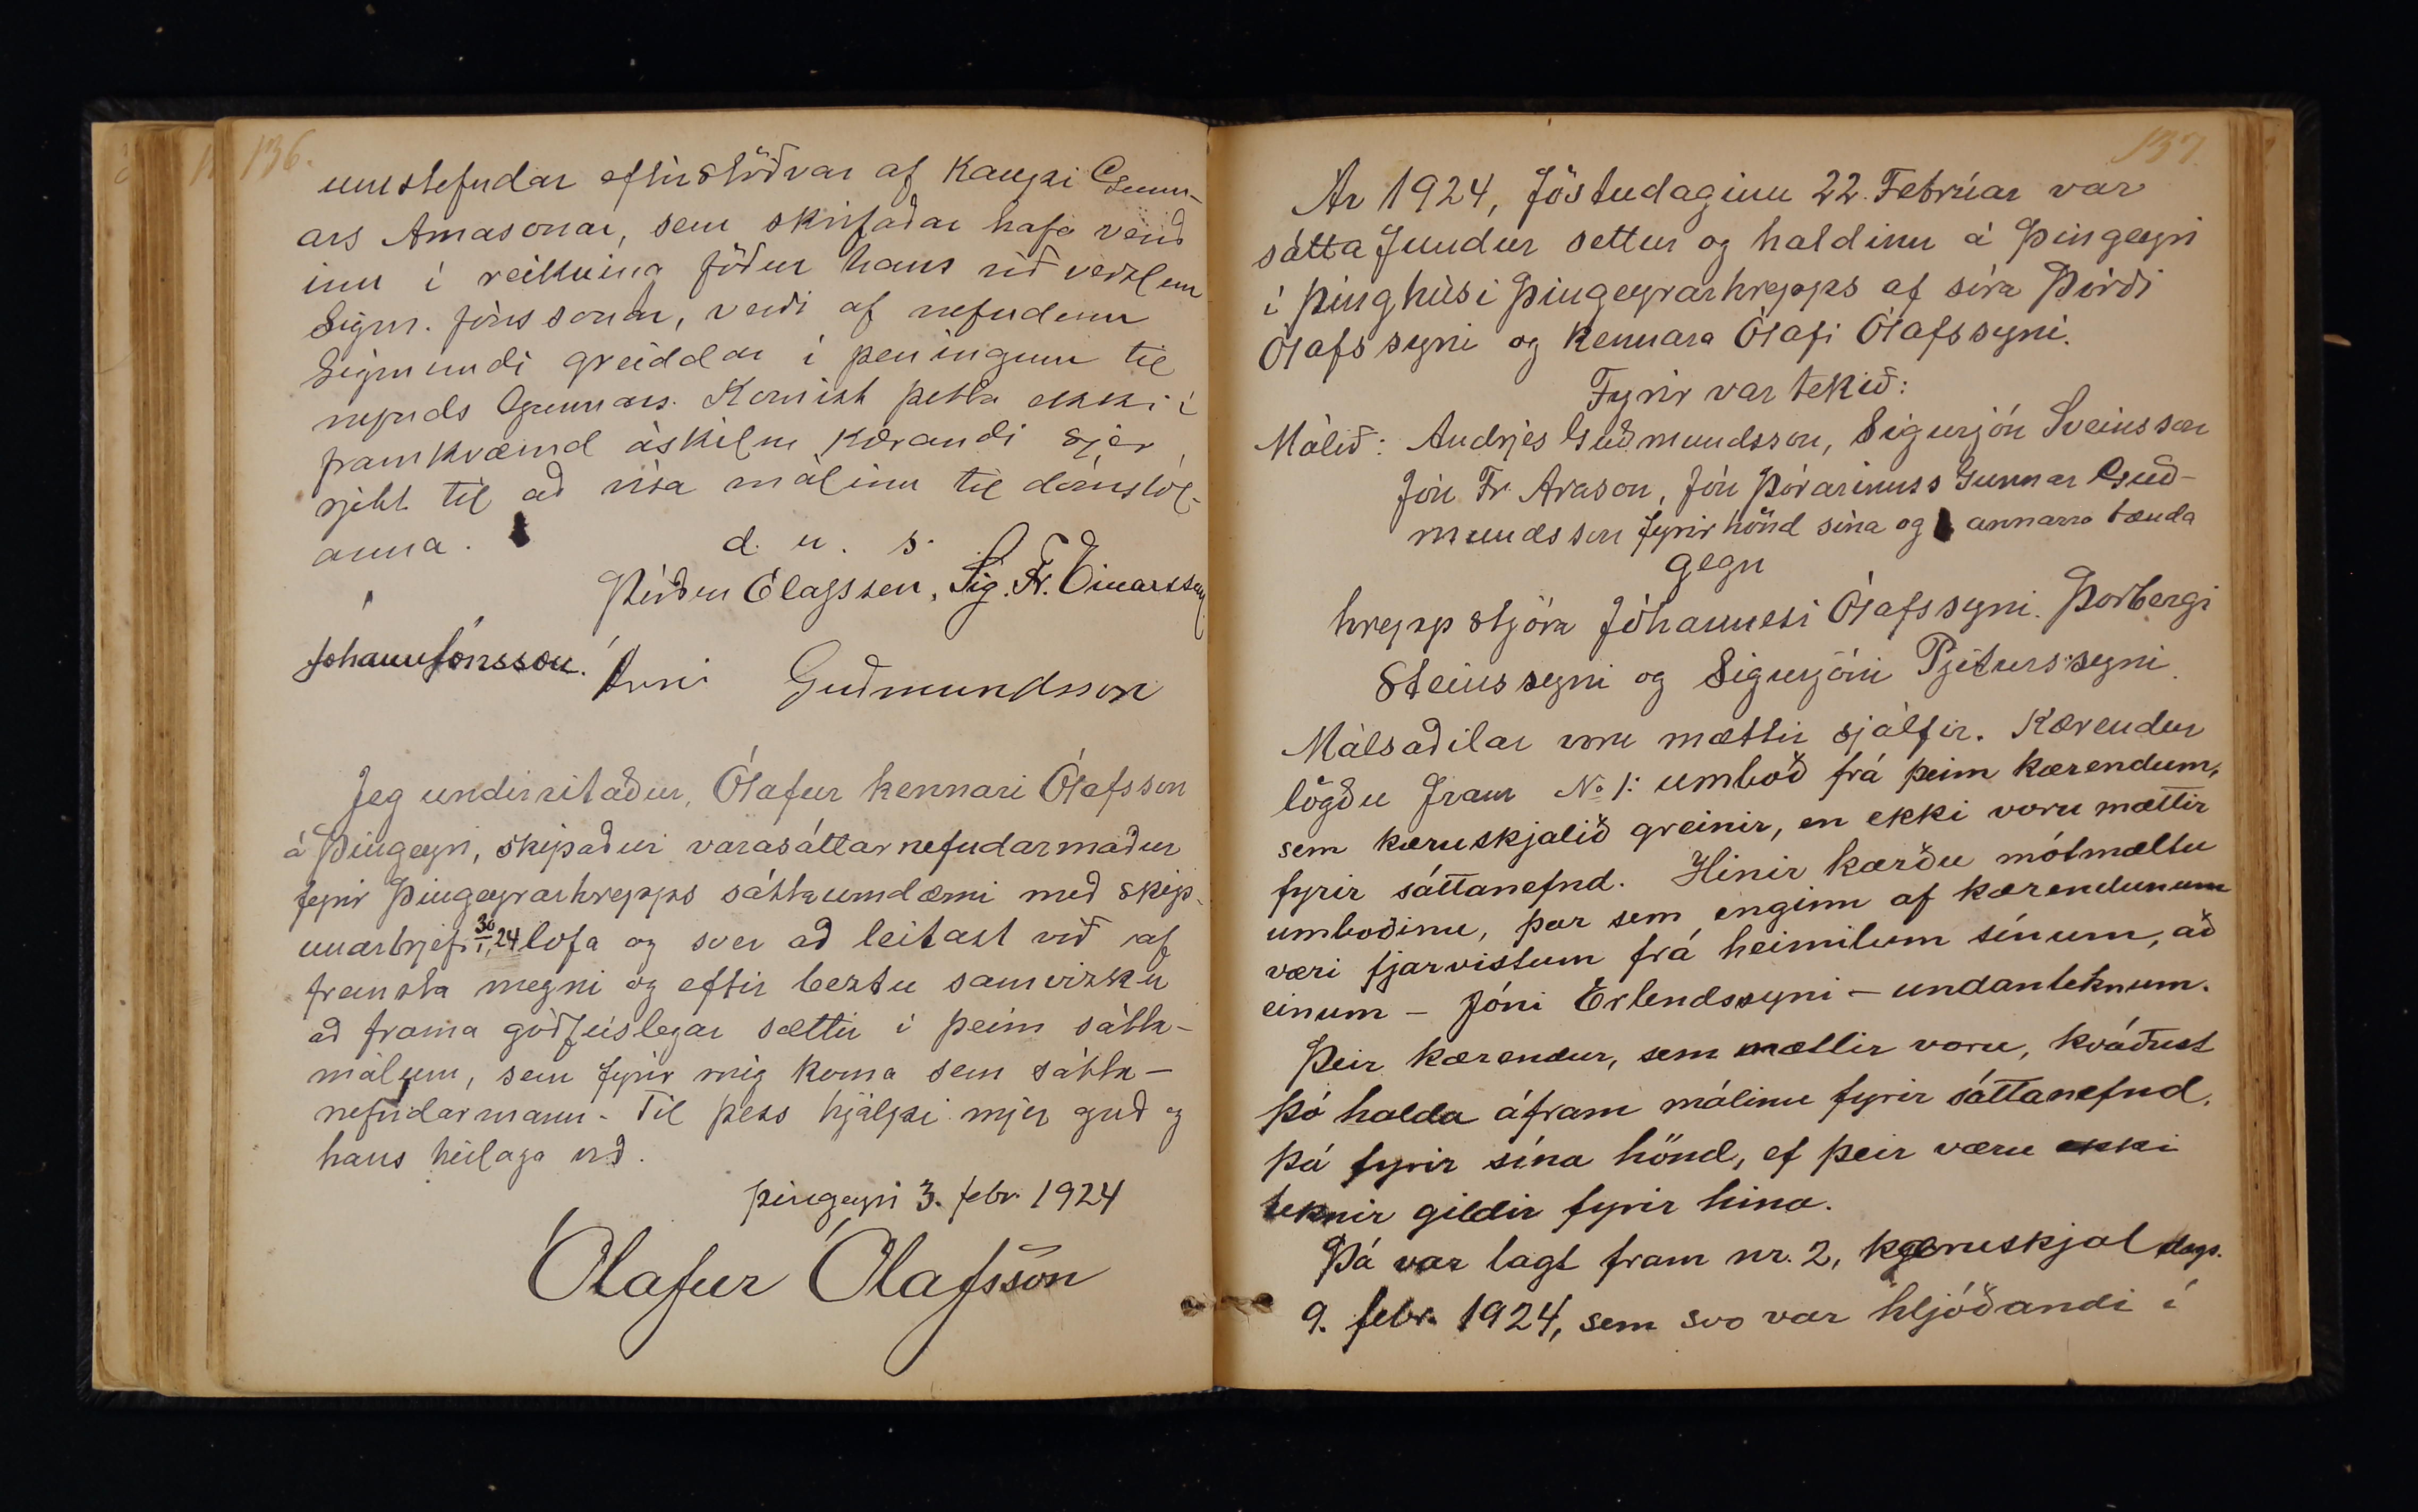 136.
umstefndar eftirstöðvar af kaupi Gunn-
ars Arnasonar, sem skrifaðar hafa verið
inn í reikning föður hans við verzlun
Sigm. Jónssonar, verði af nefndum
Sigmundi greiddar í peningum til
nefnds Gunnars. Komist þetta ekki í
framkvæmd áskilur kærandi sjer
rjett til að vísa málinu til dómstól-
anna.
d. u. s.
Þórður Ólafsson, Sig. Fr. Einarsson
Jóhann Jónsson. Árni Guðmundsson
Jeg undirritaður, Ólafur kennari Ólafsson
á Þingeyri, skipaður varasáttanefndarmaður
fyrir Þingeyrarhrepps sáttaumdæmi með skip-
unarbrjefi 30/1, 24 lofa og sver að leitast við af
fremsta megni og eftir beztu samvizku
að frama góðfúslegar sættir í þeim sátta-
málum, sem fyrir mig koma sem sátta-
nefndarmann. Til þess hjálpi mjer guð og
hans heilaga orð.
Þingeyri 3. febr. 1924
Ólafur Ólafsson
137.
Ár 1924, föstudaginn 22. Febrúar var
sáttafundur settur og haldinn á Þingeyri
í þinghúsi Þingeyrarhrepps af síra Þórði
Ólafssyni og kennara Ólafi Ólafssyni.
Fyrir var tekið:
Málið: Andrjes Guðmundsson, Sigurjón Sveinsson
Jón Fr. Arason, Jón Þórarinnss Gunnar Guð-
mundsson fyrir hönd sína og annarra bænda
gegn
hreppstjóra Jóhannesi Ólafssyni. Þorbergi
Steinssyni og Sigurjóni Pjeturssyni.
Málsaðilar voru mættir sjálfir. Kærendur
lögðu fram No 1: umboð frá þeim kærendum,
sem kæruskjalið greinir, en ekki voru mættir
fyrir sáttanefnd. Hinir kærðu mótmæltu
umboðinu, þar sem enginn af kærendunum
væri fjarvistum frá heimilum sínum, að
einum – Jóni Erlendssyni – undanteknum.
Þeir kærendur, sem mættir voru, kváðust
þó halda áfram málinu fyrir sáttanefnd,
þá fyrir sína hönd, ef þeir væru ekki
teknir gildir fyrir hina.
Þá var lagt fram nr. 2, kæruskjal dags.
9. febr. 1924, sem svo var hljóðandi í